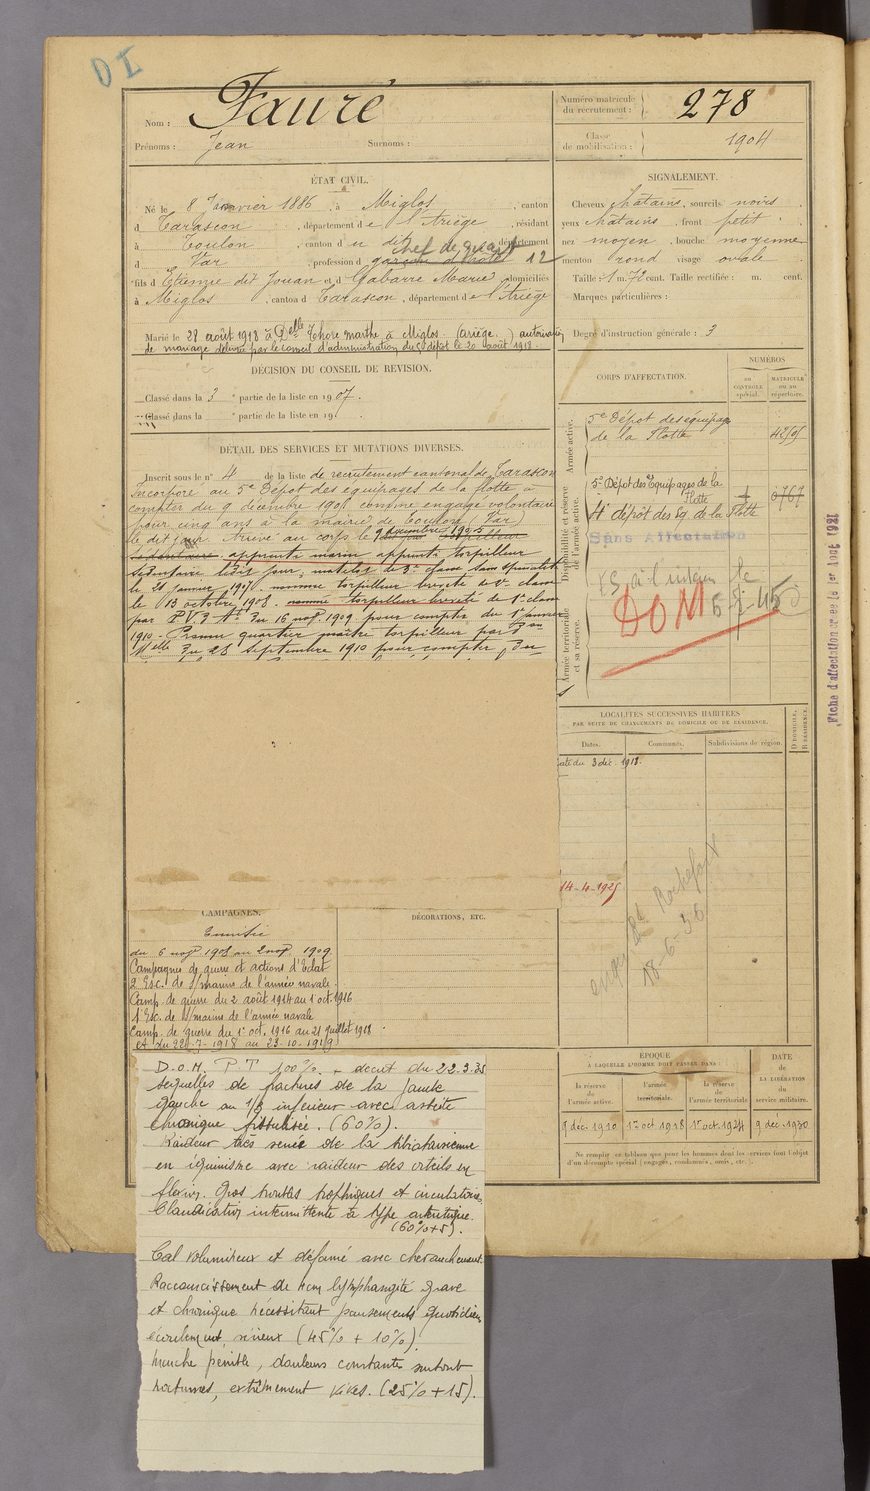 D I
Nom : Fauré
Prénoms : Jean Surnoms :
Numéro matricule du recrutement : 278
Classe de mobilisation : 1904
ÉTAT CIVIL.
Né le 8 Janvier 1886, à Miglos, canton
d Tarascon, département de l'Ariège, résidant
à Toulon, canton d u dit, département
d Var, profession d garçon d'hôtel chef de quart 12
fils d Etienne dit Jouan et d Gabarre Marie domiciliés
à Miglos, canton d Tarascon, département de l'Ariège
Marié le 28 août 1918 à Delle Thore marthe à Miglos (Ariège.) autorisation
de mariage délivrée par le conseil d'administration du 5e dépôt le 20 août 1918.
SIGNALEMENT.
Cheveux châtains, sourcils noirs
yeux châtains, front petit
nez moyen, bouche moyenne
menton rond visage ovale
Taille : 1 m. 72 cent. Taille rectifiée : m. cent.
Marques particulières :
Degré d'instruction générale : 3
DÉCISION DU CONSEIL DE RÉVISION.
Classé dans la 3e partie de la liste en 1907.
Classé dans la e partie de la liste en 19
DÉTAIL DES SERVICES ET MUTATIONS DIVERSES.
Inscrit sous le n° 4 de la liste de recrutement cantonal de Tarascon
Incorporé au 5e Dépôt des équipages de la flotte à
compter du 9 décembre 1905 comme engagé volontaire
pour cinq ans à la mairie de Toulon (Var)
le dit jour Arrivé au corps le 9 décembre 1905
apprenti marin apprenti torpilleur
sédentaire ledit jour, matelot de 3e classe sans spécialité
le 21 janvier nommé torpilleur breveté de 2e classe
le 13 octobre 1908. nommé torpilleur breveté de 1e classe
par P.V. du 16 nov. 1909 pour compter du 1er janvier
1910 - Promu quartier maître torpilleur par
Mlle du 23 septembre 1910 pour compter du
CORPS D'AFFECTATION.
NUMÉROS
AU CONTRÔLE spécial.
MATRICULE ou au répertoire.
Armée active.
5e Dépôt des équipages
de la Flotte
Disponibilité et réserve de l'armée active.
5e Dépôt des Equipages de la
Flotte
4e dépôt des Eq. de la Flotte
Sans Affectation
Armée territoriale et sa réserve.
DOM
Fiche d'affectation créée le 1er Aout 1931
LOCALITÉS SUCCESSIVES HABITÉES
PAR SUITE DE CHANGEMENTS DE DOMICILE OU DE RÉSIDENCE.
Dates. Communes. Subdivisions de région. D DOMICILE. R RÉSIDENCE.
du 3 déc. 1918.
14-4-1925
Rochefort
18-6-36
CAMPAGNES.
Tunisie
du 6 nov. 1908 au 2 nov. 1909
Campagnes de guerre et actions d'éclat
2e Esc. de S/marins de l'armée navale
Camp. de guerre du 2 août 1914 au 1 oct. 1916
1e Esc. de S/marins de l'armée navale
Camp. de guerre du 1e oct. 1916 au 21 juillet 1918
et du 22-7-1918 au 23-10-1919
DÉCORATIONS, ETC.
ÉPOQUE
À LAQUELLE L'HOMME DOIT PASSER DANS :
la réserve de l'armée active.
l'armée territoriale.
la réserve de l'armée territoriale
DATE de LA LIBÉRATION du service militaire.
9 déc. 1910 1er oct 1918 1er oct. 1924 9 déc. 1930
Ne remplir ce tableau que pour les hommes dont les services font l'objet
d'un décompte spécial (engagés, condamnés, omis, etc.).
D.O.M. P.T 100%. - décret du 22.3.35
séquelles de fractures de la jambe
gauche au 1/3 inférieur avec ostéite
chronique fistulisée. (60%).
Raideur très serrée de la tibiotarsienne
en équinisme avec raideur des orteils en
flexion. Gros troubles trophiques et circulatoires
Claudication intermittente à type artéritique.
(60%+5).
Cal volumineux et déformé avec chevauchement.
Raccourcissement de lymphangite grave
et chronique nécessitant pansements quotidiens
écoulement séreux (45% + 10%)
marche pénible, douleurs constantes surtout
nocturnes, extrêmement vives. (25%+15).